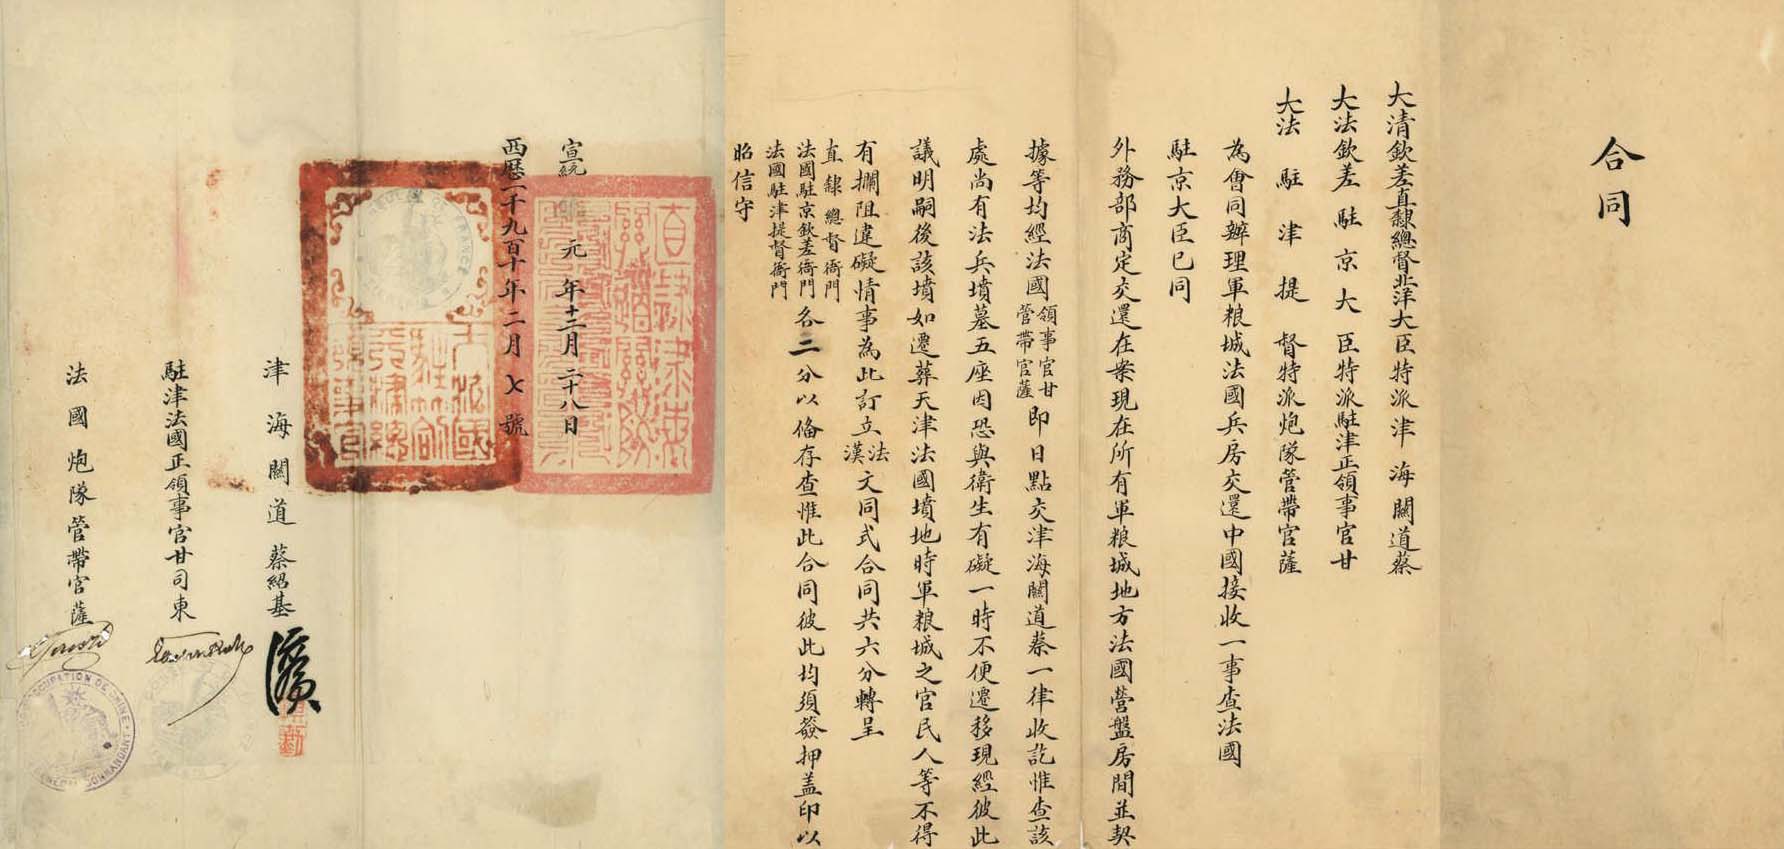 合同
大清欽差直隸總督北洋大臣特派津海關道蔡
大法欽差駐京大臣特派駐津正領事官甘
大法駐津提督特派炮隊管帶官薩
為會同辦理軍粮城法國兵房交還中國接收一事查法國
駐京大臣已同
外務部商定交還在案現在所有軍粮城地方法國營盤房間並契
據等均經法國領事官甘管帶官薩即日點交津海關道蔡一律收訖惟查該
處尚有法兵墳墓五座因恐與衛生有礙一時不便遷移現經彼此
議明嗣後該墳如遷葬天津法國墳地時軍粮城之官民人等不得
有攔阻違礙情事為此訂立法漢文同式合同共六分轉呈
直隸總督衙門
法國駐京欽差衙門各二分以備存查惟此合同彼此均須簽押盖印以
法國駐津提督衙門
昭信守
宣統元年十二月二十八日
西歷一千九百十年二月七號
津海關道蔡紹基
駐津法國正領事官甘司東
法國炮隊管帶官薩
OCCUPATION DE CHINE